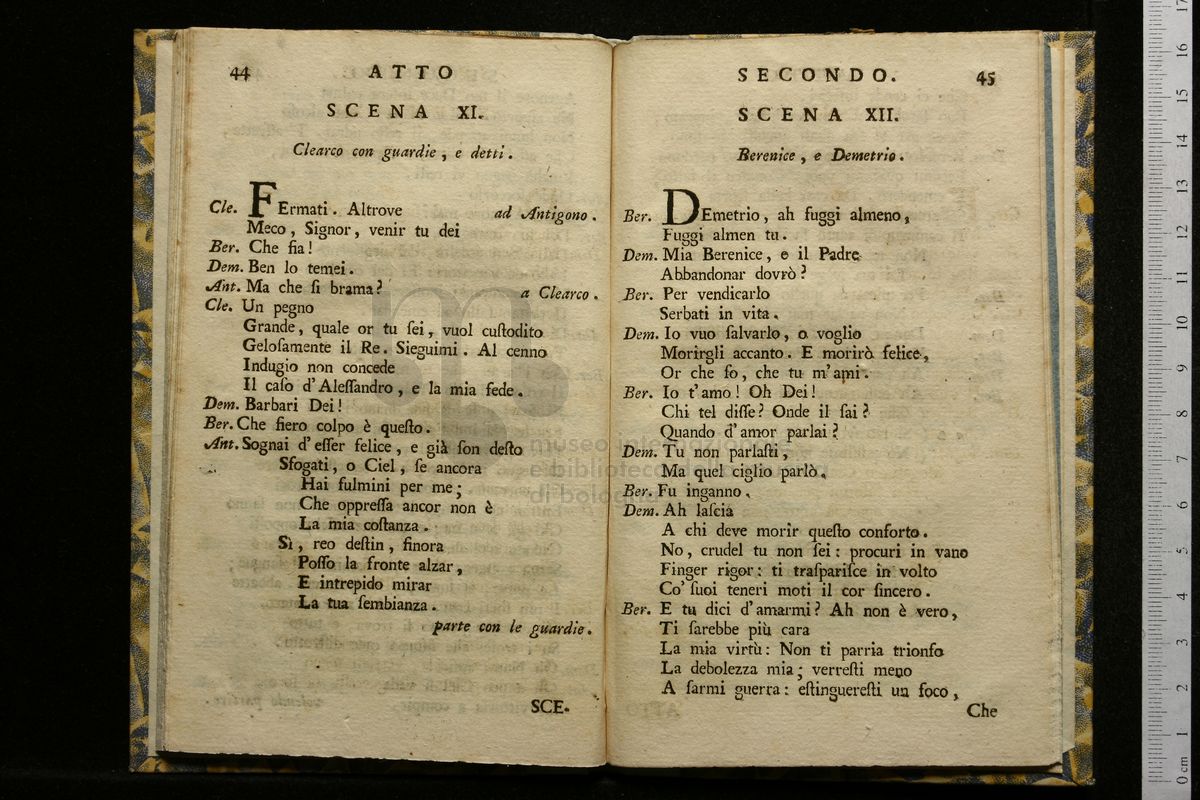 44 ATTO
SCENA XI.
Clearco con guardie, e detti.
Cle. FErmati. Altrove ad Antigono.
Meco, Signor, venir tu dei
Ber. Che fia!
Dem. Ben lo temei.
Ant. Ma che ſi brama? a Clearco.
Cle. Un pegno
Grande, quale or tu ſei, vuol cuſtodito
Geloſamente il Re. Sieguimi. Al cenno
Indugio non concede
Il caſo d'Aleſſandro, e la mia fede.
Dem. Barbari Dei!
Ber. Che fiero colpo è queſto.
Ant. Sognai d'eſſer felice, e già ſon deſto
Sfogati, o Ciel, ſe ancora
Hai fulmini per me;
Che oppreſſa ancor non è
La mia coſtanza.
Sì, reo deſtin, finora
Poſſo la fronte alzar,
E intrepido mirar
La tua ſembianza.
parte con le guardie.
SCE-
SECONDO. 45
SCENA XII.
Berenice, e Demetrio.
Ber. DEmetrio, ah fuggi almeno,
Fuggi almen tu.
Dem. Mia Berenice, e il Padre
Abbandonar dovrò?
Ber. Per vendicarlo
Serbati in vita.
Dem. Io vuo ſalvarlo, o voglio
Morirgli accanto. E morirò felice,
Or che ſo, che tu m'ami.
Ber. Io t'amo! Oh Dei!
Chi tel diſſe? Onde il ſai?
Quando d'amor parlai?
Dem. Tu non parlaſti,
Ma quel ciglio parlò.
Ber. Fu inganno.
Dem. Ah laſcia
A chi deve morir queſto conforto.
No, crudel tu non ſei: procuri in vano
Finger rigor: ti traſpariſce in volto
Co' ſuoi teneri moti il cor ſincero.
Ber. E tu dici d'amarmi? Ah non è vero,
Ti ſarebbe più cara
La mia virtù: Non ti parria trionfo
La debolezza mia; verreſti meno
A farmi guerra: eſtinguereſti un foco,
Che
museo internazionale
e biblioteca della musica
di bologna
0 cm 1 2 3 4 5 6 7 8 9 10 11 12 13 14 15 16 17